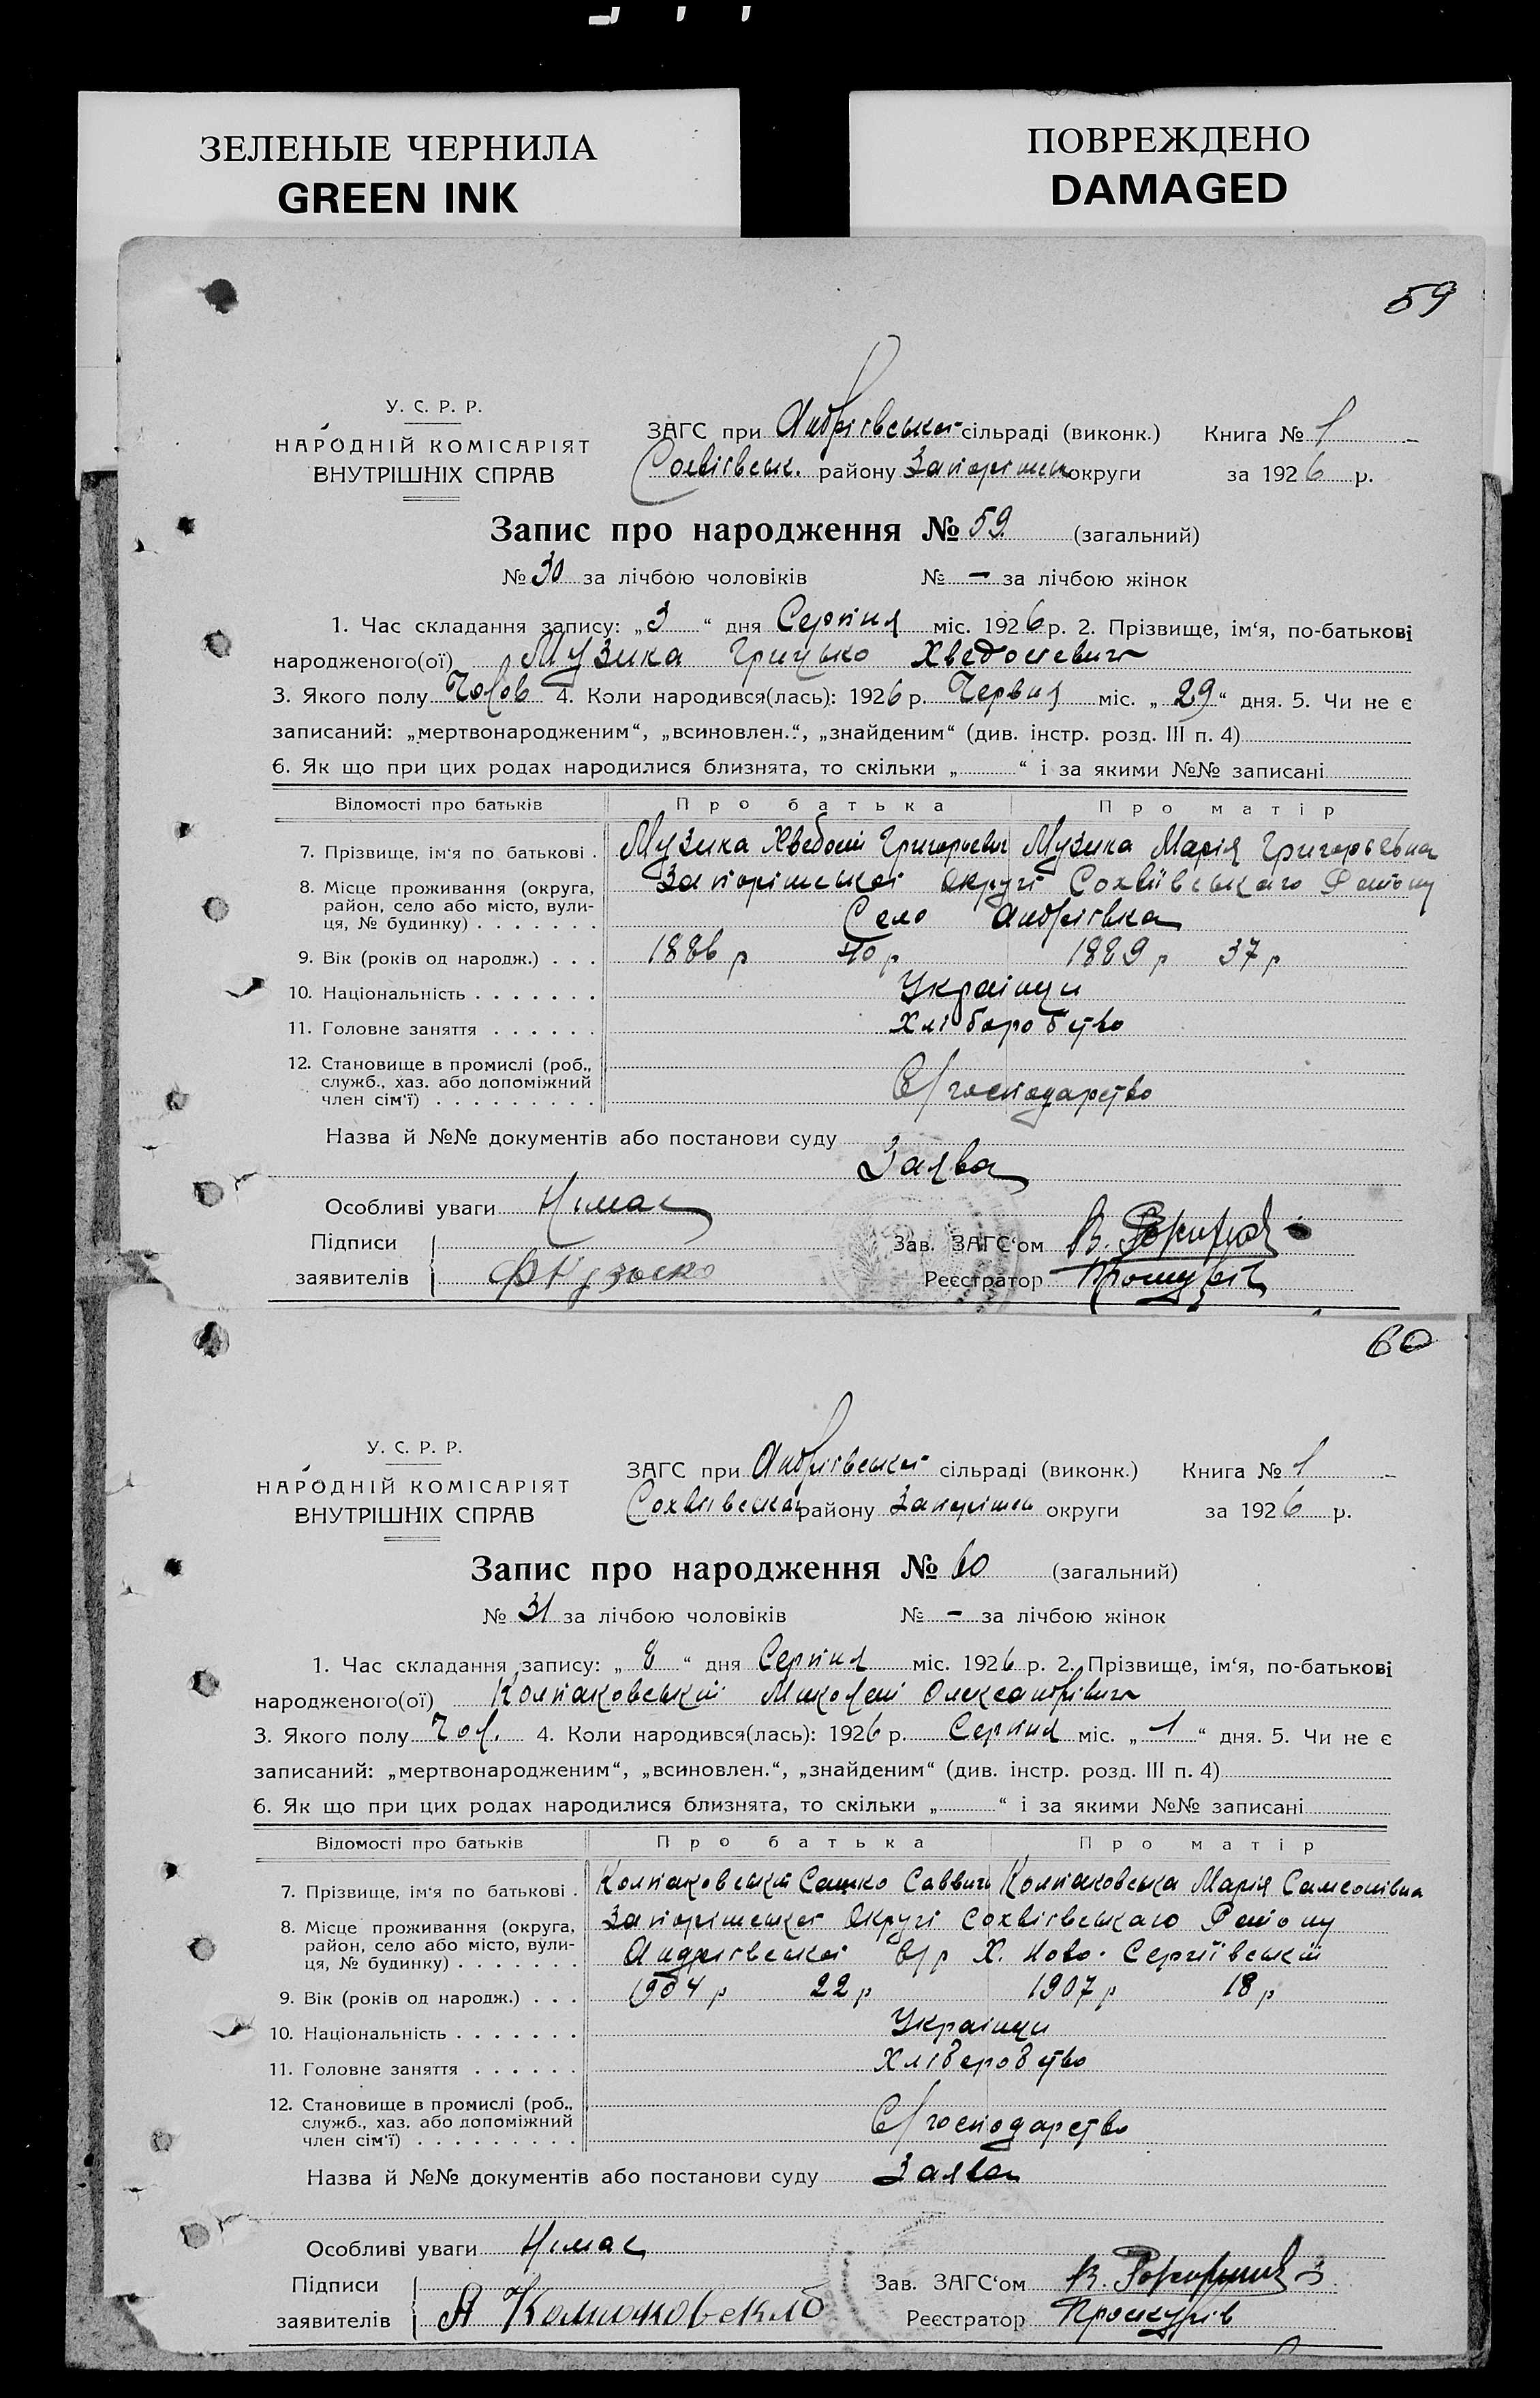 ЗЕЛЕНЫЕ ЧЕРНИЛА
GREEN INK
ПОВРЕЖДЕНО
DAMAGED
59
У. С. Р. Р.
НАРОДНІЙ КОМІСАРІЯТ
ВНУТРІШНІХ СПРАВ
ЗАГС при Андріівській сільраді (виконк.) Книга № 1
району Запоріжськ округи за 1926 р.
Запис про народження № 59 (загальний)
№ 30 за лічбою чоловіків № – за лічбою жінок
1. Час складання запису: „3“ дня Серпня міс. 1926 р. 2. Прізвище, ім‘я, по-батькові
народженого(ої) Музика Грицько Хведосієвич
3. Якого полу Чолов 4. Коли народився(лась): 1926 р. Червня міс. „29“ дня. 5. Чи не є
записаний: „мертвонародженим“, „всиновлен.“, „знайденим“ (див. інстр. розд. III п. 4)
6. Як що при цих родах народилися близнята, то скільки „ “ і за якими №№ записані
Відомості про батьків Про батька Про матір
7. Прізвище, ім‘я по батькові . Музика Хведосій Григорьевич Музика Марія Григорьевна
8. Місце проживання (округа, район, село або місто, вулиця, № будинку) . . . . . . . Запоріжськоі Округі Сохвіівськаго Району
Село Андріівка
9. Вік (років од народж.) . . . 1886 р 40 р 1889 р 37 р
10. Національність . . . . . . . Украінци
11. Головне заняття . . . . . . Хліборобство
12. Становище в промислі (роб., служб., хаз. або допоміжний член сім‘ї) . . . . . . . . . С/господарство
Назва й №№ документів або постанови суду
Заява
Особливі уваги Німає
Підписи
заявителів
Зав. ЗАГС‘ом В.
Реєстратор Проскурів
60
У. С. Р. Р.
НАРОДНІЙ КОМІСАРІЯТ
ВНУТРІШНІХ СПРАВ
ЗАГС при Андріівській сільраді (виконк.) Книга № 1
Сохвіівськаго району Запоріжськ округи за 1926 р.
Запис про народження № 60 (загальний)
№ 31 за лічбою чоловіків № – за лічбою жінок
1. Час складання запису: „8“ дня Серпня міс. 1926 р. 2. Прізвище, ім‘я, по-батькові
народженого(ої) Колпаковський Миколай Олександрівич
3. Якого полу Чол. 4. Коли народився(лась): 1926 р. Серпня міс. „1“ дня. 5. Чи не є
записаний: „мертвонародженим“, „всиновлен.“, „знайденим“ (див. інстр. розд. III п. 4)
6. Як що при цих родах народилися близнята, то скільки „ “ і за якими №№ записані
Відомості про батьків Про батька Про матір
7. Прізвище, ім‘я по батькові . Колпаковський Сашко Саввич Колпаковська Марія Самсонівна
8. Місце проживання (округа, район, село або місто, вулиця, № будинку) . . . . . . . Запоріжськоі Округі Сохвіівськаго Району
Андріівськоі с/р Х. Ново-Сергіївській
9. Вік (років од народж.) . . . 1904 р 22 р 1907 р 18 р
10. Національність . . . . . . . Украінци
11. Головне заняття . . . . . . Хліборобство
12. Становище в промислі (роб., служб., хаз. або допоміжний член сім‘ї) . . . . . . . . . С/господарство
Назва й №№ документів або постанови суду Заява
Особливі уваги Німає
Підписи
заявителів А
Зав. ЗАГС‘ом В.
Реєстратор Проскурів